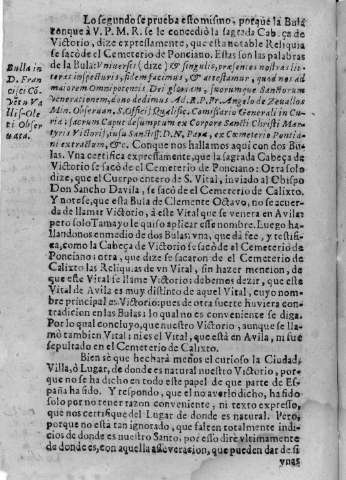 Lo segundo se prueba esto mismo, porque la Bula
conque à V. P. M. R. se le concediò la sagrada Cabeça de
Victorio, dize expressamente, que esta notable Reliquia
se sacò de el Cemeterio de Ponciano. Estas son las palabras
de la Bula: Vniversis (dize) & singulis, præsentes nostras lit-
teras inspecturis, fidem facimus, & attestamur, quod nos ad
maiorem Omnipotentis Dei gloriam, suorumque Sanctorum
venerationem, dono dedimus Ad. R. P. Fr. Angelo de Zeuallos
Min. Obseruan. S. Officij Qualific. Comissario Generali in Cu-
ria; sacrum Caput desumptum ex Corpore Sancti Christi Ma-
rtyris Victorij, iusu Sanctiss. D. N. Papæ, ex Cœmeterio Pontia-
ni extractum, &c. Conque nos hallamos aqui con dos Bu-
las. Vna certifica expressamente, que la sagrada Cabeça de
Victorio se sacò de el Cemeterio de Ponciano: Otra solo
dize, que el Cuerpo entero de S. Vital, inviado al Obispo
Don Sancho Davila, se sacò de el Cemeterio de Calixto.
Y notese, que esta Bula de Clemente Octavo, no se acuer-
da de llamar Victorio, à este Vital que se venera en Avila;
pero solo Tamayo le quiso aplicar este nombre. Luego ha-
llandonos en medio de dos Bulas: vna, que dà fee, y testifi-
ca, como la Cabeça de Victorio se sacò de el Cemeterio de
Ponciano: otra, que dize se sacaron de el Cemeterio de
Calixto las Reliquias de vn Vital, sin hazer mencion, de
que este Vital se llame Victorio: debemos dezir, que este
Vital de Avila es muy distinto de aquel Vital, cuyo nom-
bre principal es Victorio: pues de otra suerte huviera con-
tradicion en las Bulas: lo qual no es conveniente se diga.
Por lo qual concluyo, que nuestro Victorio, aunque se lla-
mò tambien Vital: ni es el Vital, que està en Avila, ni fuè
sepultado en el Cemeterio de Calixto.
Bien sè que hecharà menos el curioso la Ciudad,
Villa, ò Lugar, de donde es natural nuestro Victorio, por-
que no se ha dicho en todo este papel de que parte de Es-
paña ha sido. Y respondo, que el no averlo dicho, ha sido
solo por no tener razon conveniente; ni texto expresso,
que nos certifique del Lugar de donde es natural. Pero,
porque no està tan ignorado, que falten totalmente indi-
cios de donde es nuestro Santo; por esso dire vltimamente
de donde es, con aquella asseveracion, que pueden dar de si
vnas
Bulla in
D. Fran-
cisci Co-